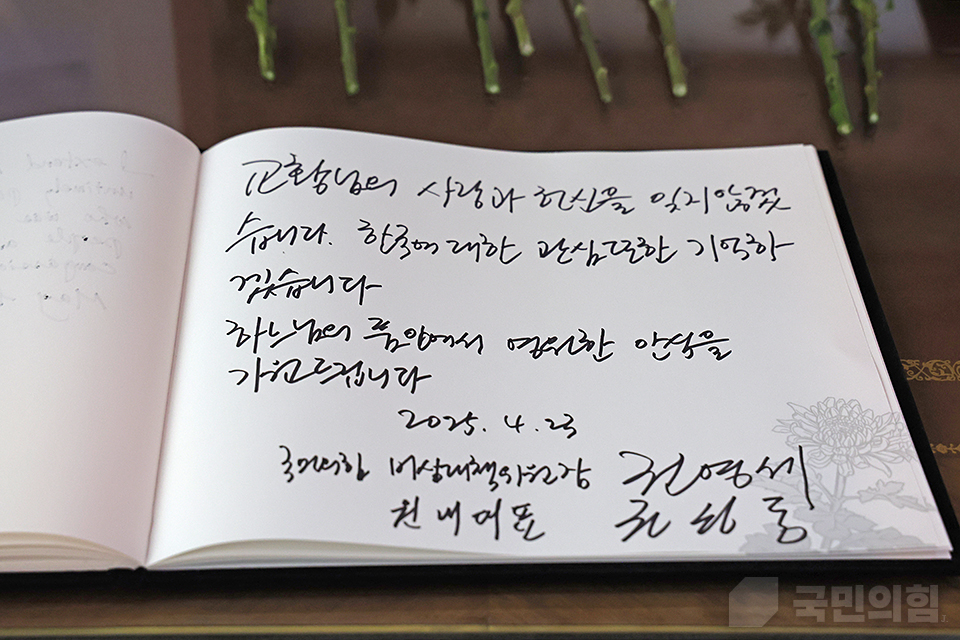 교황님의 사랑과 헌신을 잊지않겠
습니다. 한국에 대한 관심 또한 기억하
겠습니다
하느님의 품안에서 영원한 안식을
기원드립니다
2025. 4. 23
국민의힘 비상대책위원장 권영세
원내대표 권성동
국민의힘